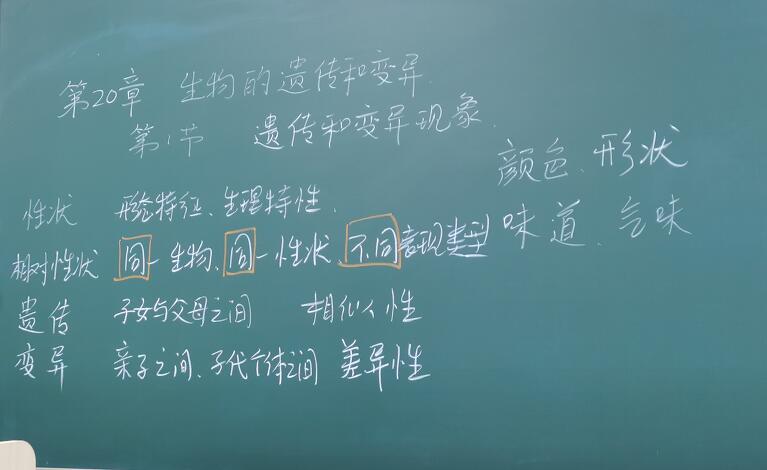 第20章 生物的遗传和变异.
第1节 遗传和变异现象.
颜色、形状
味道、气味
性状 形态特征、生理特性.
相对性状 同一生物、同一性状、不同表现类型
遗传 子女与父母之间 相似性
变异 亲子之间、子代个体之间 差异性